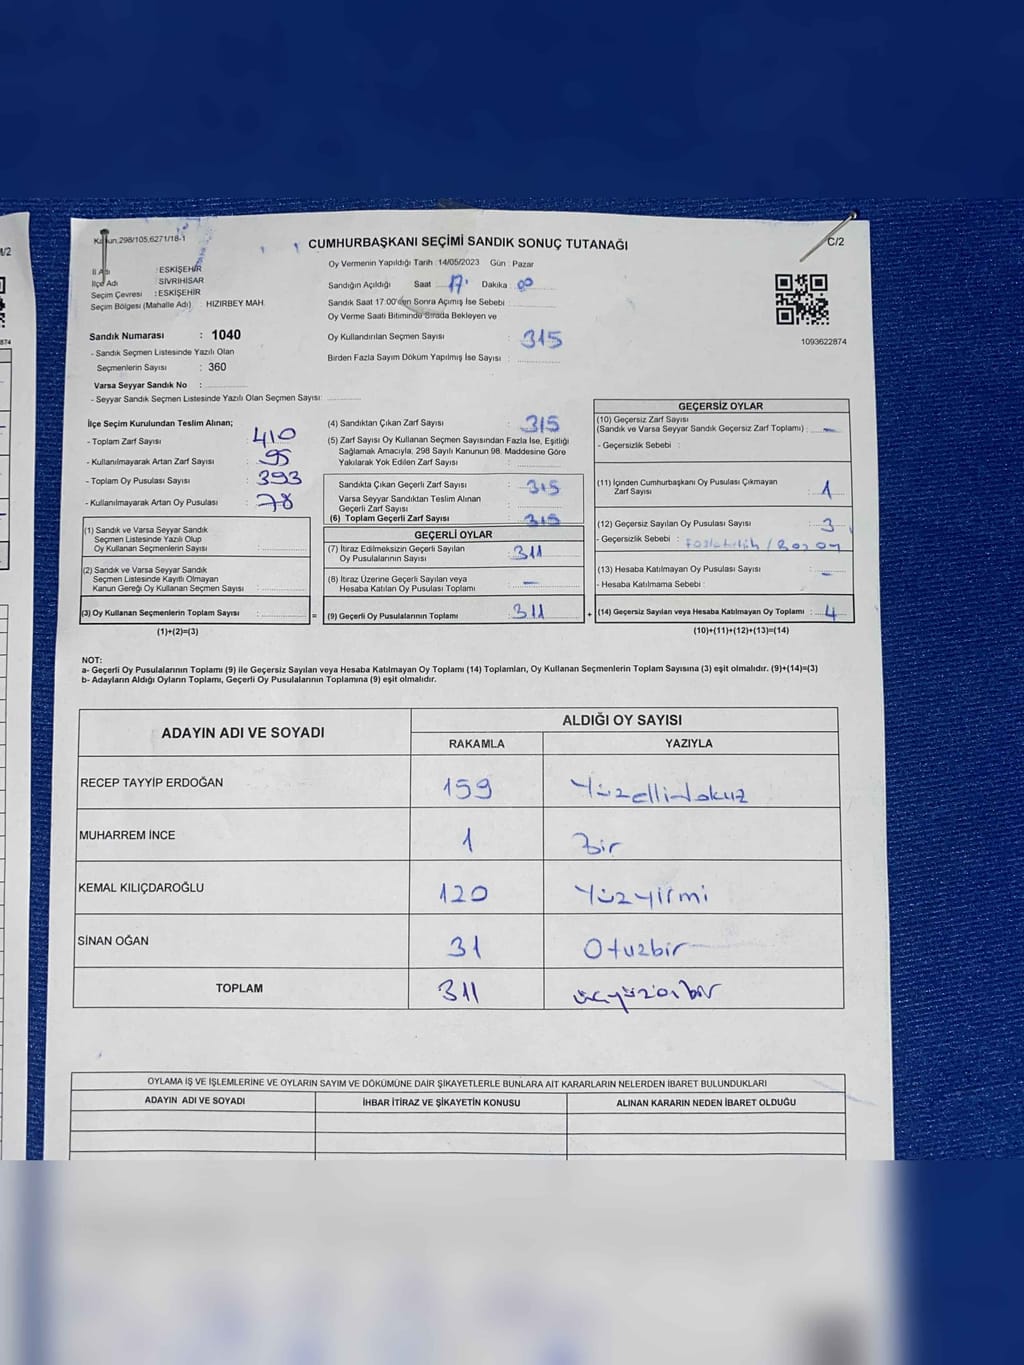 Kanun.298/105,6271/18-1
CUMHURBAŞKANI SEÇİMİ SANDIK SONUÇ TUTANAĞI
C/2
İl Adı : ESKİŞEHİR
İlçe Adı : SİVRİHİSAR
Seçim Çevresi : ESKİŞEHİR
Seçim Bölgesi (Mahalle Adı) : HIZIRBEY MAH.
Oy Vermenin Yapıldığı Tarih :14/05/2023 Gün : Pazar
Sandığın Açıldığı Saat 17 Dakika 00
Sandık Saat 17:00'den Sonra Açımış İse Sebebi :
Oy Verme Saati Bitiminde Sırada Bekleyen ve
Oy Kullandırılan Seçmen Sayısı : 315
Birden Fazla Sayım Döküm Yapılmış İse Sayısı :
1093622874
Sandık Numarası : 1040
- Sandık Seçmen Listesinde Yazılı Olan
Seçmenlerin Sayısı : 360
Varsa Seyyar Sandık No :
- Seyyar Sandık Seçmen Listesinde Yazılı Olan Seçmen Sayısı:
İlçe Seçim Kurulundan Teslim Alınan;
- Toplam Zarf Sayısı : 410
- Kullanılmayarak Artan Zarf Sayısı : 95
- Toplam Oy Pusulası Sayısı : 393
- Kullanılmayarak Artan Oy Pusulası : 78
(1) Sandık ve Varsa Seyyar Sandık
Seçmen Listesinde Yazılı Olup
Oy Kullanan Seçmenlerin Sayısı :
(2) Sandık ve Varsa Seyyar Sandık
Seçmen Listesinde Kayıtlı Olmayan
Kanun Gereği Oy Kullanan Seçmen Sayısı :
(3) Oy Kullanan Seçmenlerin Toplam Sayısı : =
(1)+(2)=(3)
(4) Sandıktan Çıkan Zarf Sayısı : 315
(5) Zarf Sayısı Oy Kullanan Seçmen Sayısından Fazla İse, Eşitliği
Sağlamak Amacıyla, 298 Sayılı Kanunun 98. Maddesine Göre
Yakılarak Yok Edilen Zarf Sayısı :
Sandıkta Çıkan Geçerli Zarf Sayısı : 315
Varsa Seyyar Sandıktan Teslim Alınan
Geçerli Zarf Sayısı :
(6) Toplam Geçerli Zarf Sayısı : 315
GEÇERLİ OYLAR
(7) İtiraz Edilmeksizin Geçerli Sayılan
Oy Pusulalarının Sayısı : 311
(8) İtiraz Üzerine Geçerli Sayılan veya
Hesaba Katılan Oy Pusulası Toplamı : -
(9) Geçerli Oy Pusulalarının Toplamı : 311 +
GEÇERSİZ OYLAR
(10) Geçersiz Zarf Sayısı
(Sandık ve Varsa Seyyar Sandık Geçersiz Zarf Toplamı) : -
- Geçersizlik Sebebi :
(11) İçinden Cumhurbaşkanı Oy Pusulası Çıkmayan
Zarf Sayısı : 1
(12) Geçersiz Sayılan Oy Pusulası Sayısı : 3
- Geçersizlik Sebebi :
(13) Hesaba Katılmayan Oy Pusulası Sayısı : -
- Hesaba Katılmama Sebebi :
(14) Geçersiz Sayılan veya Hesaba Katılmayan Oy Toplamı : 4
(10)+(11)+(12)+(13)=(14)
NOT:
a- Geçerli Oy Pusulalarının Toplamı (9) ile Geçersiz Sayılan veya Hesaba Katılmayan Oy Toplamı (14) Toplamları, Oy Kullanan Seçmenlerin Toplam Sayısına (3) eşit olmalıdır. (9)+(14)=(3)
b- Adayların Aldığı Oyların Toplamı, Geçerli Oy Pusulalarının Toplamına (9) eşit olmalıdır.
ADAYIN ADI VE SOYADI
ALDIĞI OY SAYISI
RAKAMLA YAZIYLA
RECEP TAYYİP ERDOĞAN 159 Yüzellidokuz
MUHARREM İNCE 1 Bir
KEMAL KILIÇDAROĞLU 120 Yüzyirmi
SİNAN OĞAN 31 Otuzbir
TOPLAM 311 üçyüzonbir
OYLAMA İŞ VE İŞLEMLERİNE VE OYLARIN SAYIM VE DÖKÜMÜNE DAİR ŞİKAYETLERLE BUNLARA AİT KARARLARIN NELERDEN İBARET BULUNDUKLARI
ADAYIN ADI VE SOYADI İHBAR İTİRAZ VE ŞİKAYETİN KONUSU ALINAN KARARIN NEDEN İBARET OLDUĞU